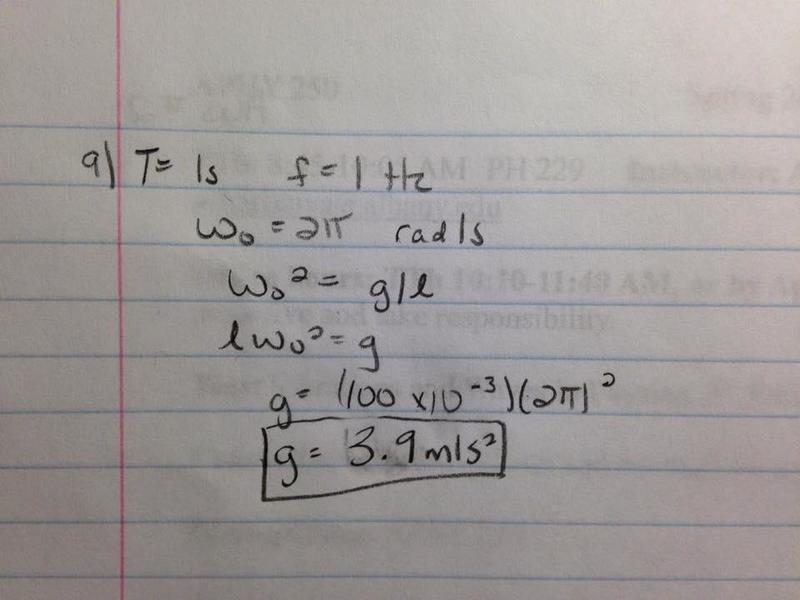 a) T= 1s f = 1 Hz
ω₀ = 2π rad/s
ω₀² = g/l
lω₀² = g
g = (100 x10⁻³)(2π)²
g = 3.9 m/s²